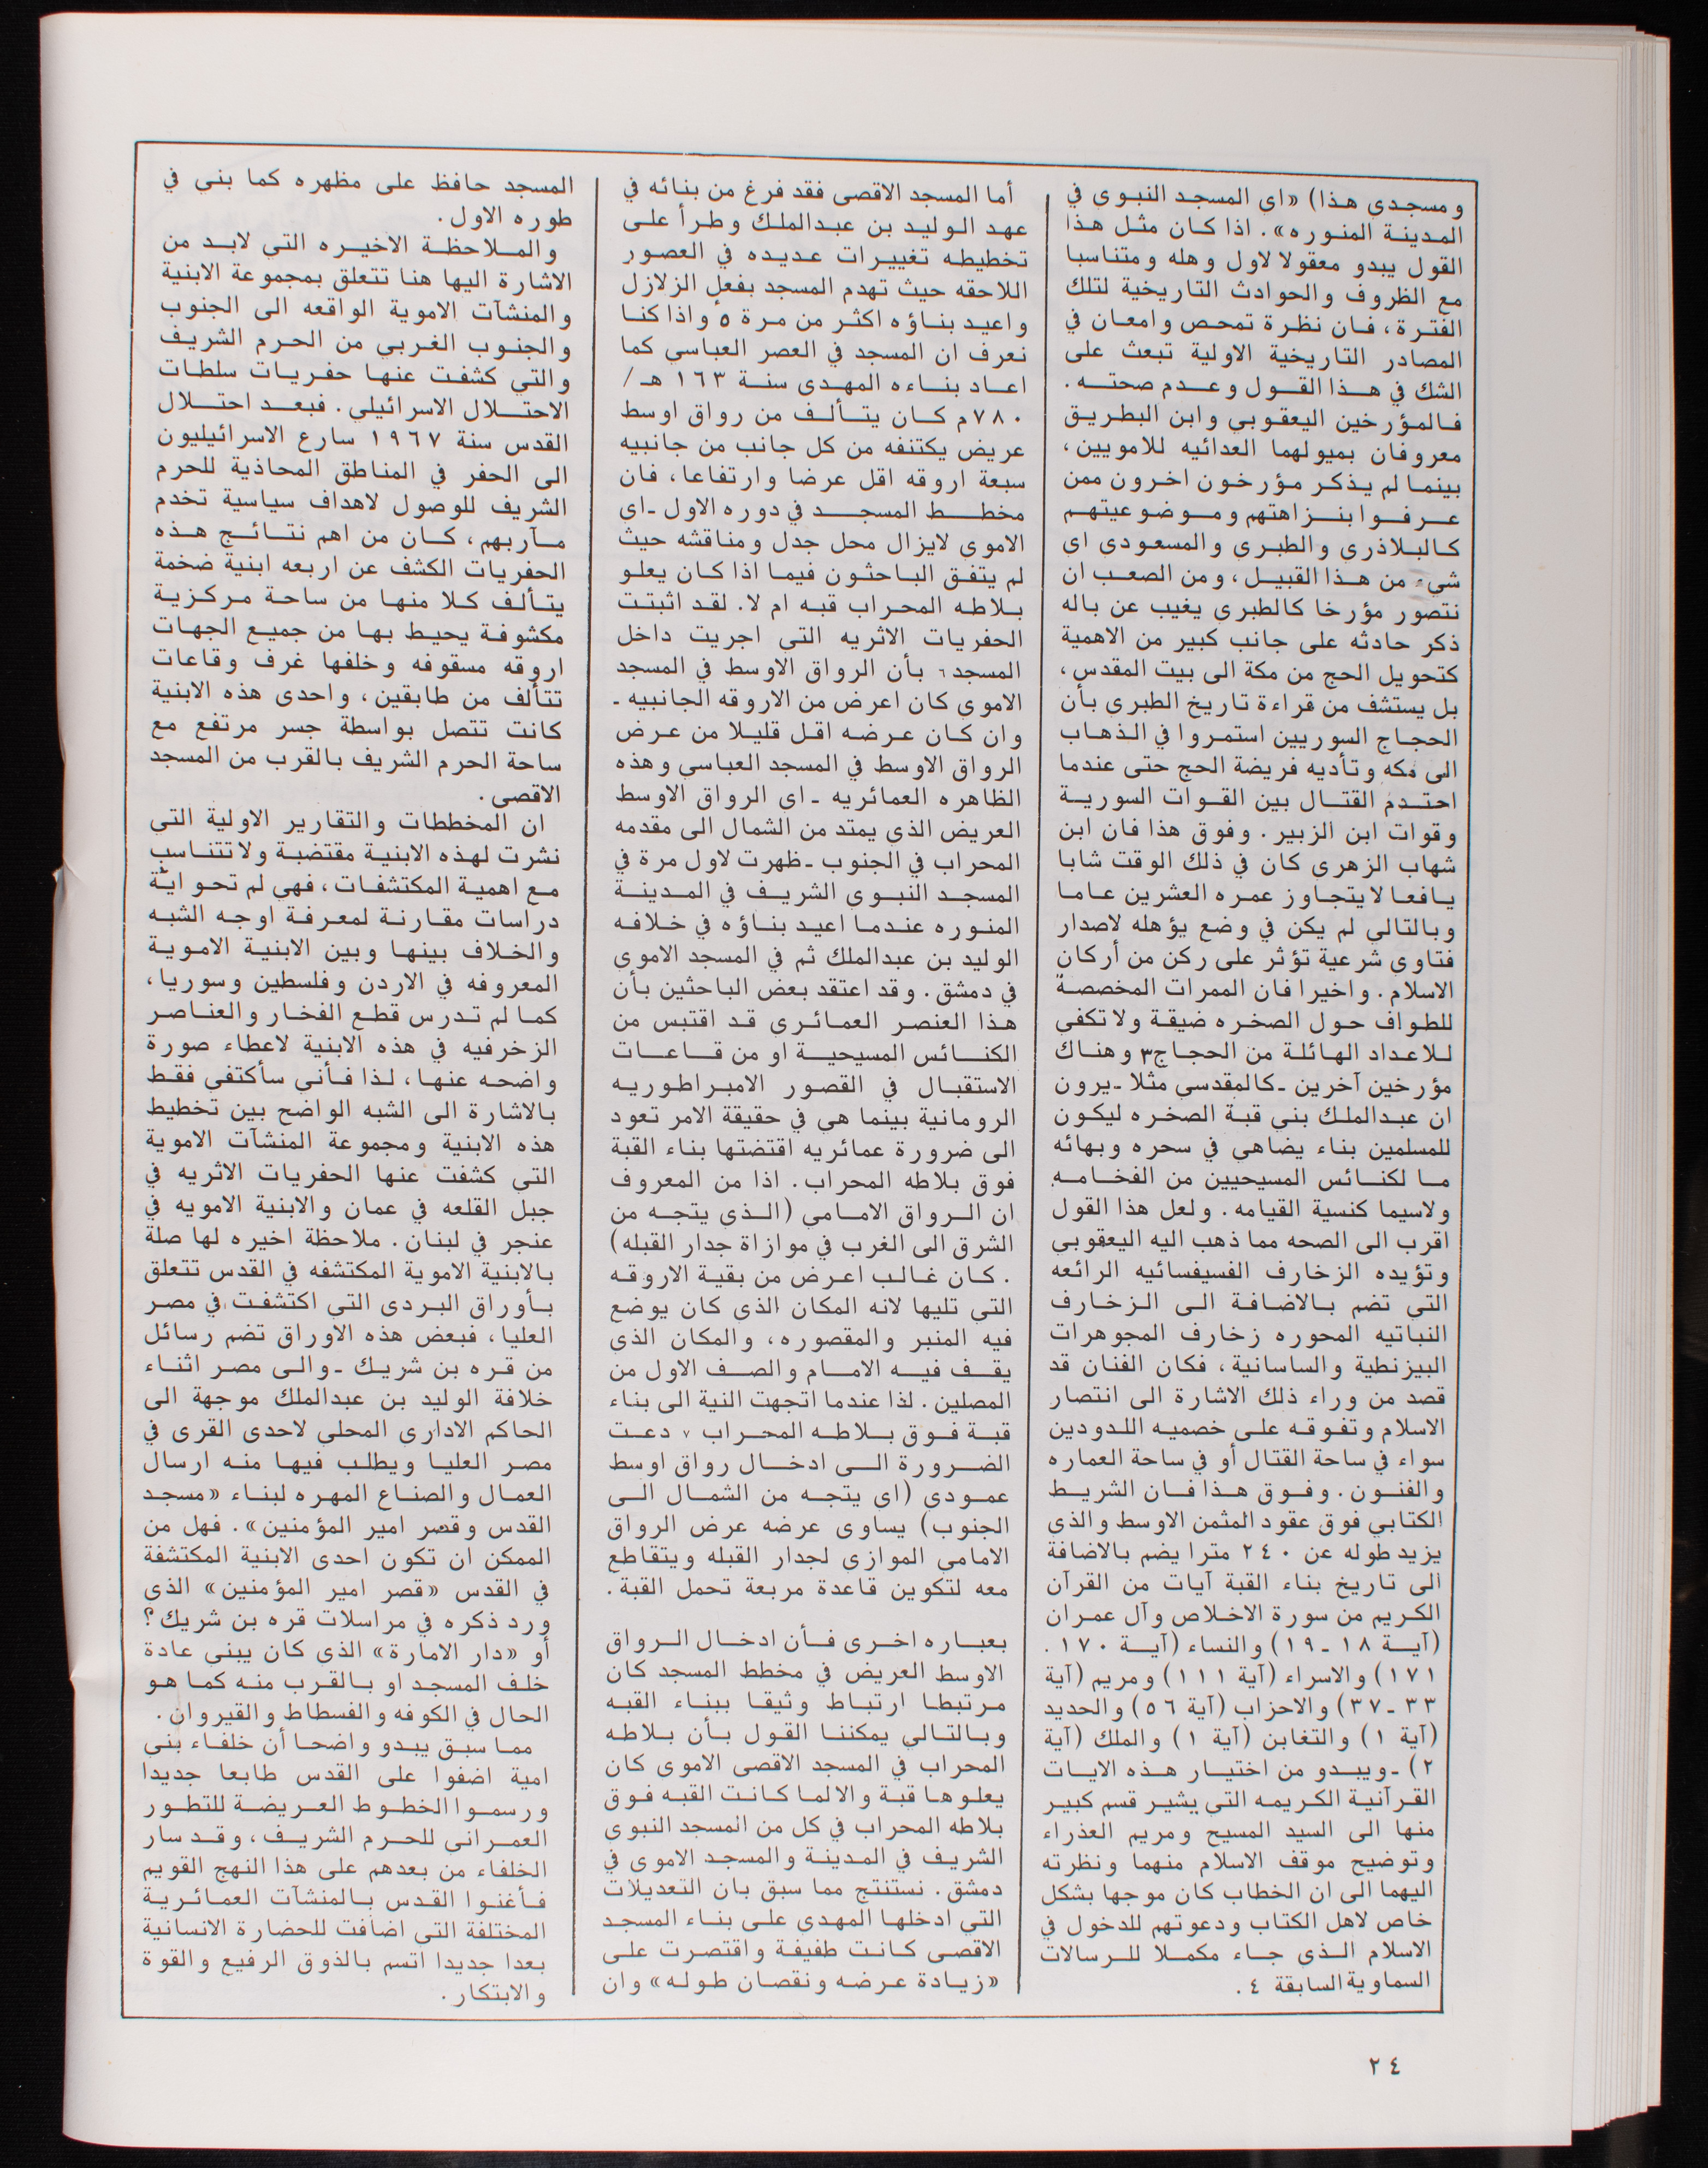 ومسجدي هذا) «اي المسجد النبوي في
المدينة المنوره». اذا كان مثل هذا
القول يبدو معقولا لاول وهله ومتناسبا
مع الظروف والحوادث التاريخية لتلك
الفترة، فان نظرة تمحص وامعان في
المصادر التاريخية الاولية تبعث على
الشك في هذا القول وعدم صحته.
فالمؤرخين اليعقوبي وابن البطريق
معروفان بميولهما العدائيه للامويين،
بينما لم يذكر مؤرخون اخرون ممن
عرفوا بنزاهتهم وموضوعيتهم
كالبلاذري والطبري والمسعودي اي
شيء من هذا القبيل، ومن الصعب ان
نتصور مؤرخا كالطبري يغيب عن باله
ذكر حادثه على جانب كبير من الاهمية
كتحويل الحج من مكة الى بيت المقدس،
بل يستشف من قراءة تاريخ الطبري بأن
الحجاج السوريين استمروا في الذهاب
الى مكه وتأديه فريضة الحج حتى عندما
احتدم القتال بين القوات السورية
وقوات ابن الزبير. وفوق هذا فان ابن
شهاب الزهري كان في ذلك الوقت شابا
يافعا لا يتجاوز عمره العشرين عاما
وبالتالي لم يكن في وضع يؤهله لاصدار
فتاوي شرعية تؤثر على ركن من أركان
الاسلام. واخيرا فان الممرات المخصصة
للطواف حول الصخره ضيقة ولا تكفي
للاعداد الهائلة من الحجاج٣ وهناك
مؤرخين آخرين ـ كالمقدسي مثلا ـ يرون
ان عبدالملك بني قبة الصخره ليكون
للمسلمين بناء يضاهي في سحره وبهائه
ما لكنائس المسيحيين من الفخامه
ولاسيما كنسية القيامه. ولعل هذا القول
اقرب الى الصحه مما ذهب اليه اليعقوبي
وتؤيده الزخارف الفسيفسائيه الرائعه
التي تضم بالاضافة الى الزخارف
النباتيه المحوره زخارف المجوهرات
البيزنطية والساسانية، فكان الفنان قد
قصد من وراء ذلك الاشارة الى انتصار
الاسلام وتفوقه على خصميه اللدودين
سواء في ساحة القتال أو في ساحة العماره
والفنون. وفوق هذا فان الشريط
الكتابي فوق عقود المثمن الاوسط والذي
يزيد طوله عن ٢٤٠ مترا يضم بالاضافة
الى تاريخ بناء القبة آيات من القرآن
الكريم من سورة الاخلاص وآل عمران
(آية ١٨ ـ ١٩) والنساء (آية ١٧٠.
١٧١) والاسراء (آية ١١١) ومريم (آية
٣٣ ـ ٣٧) والاحزاب (آية ٥٦) والحديد
(آية ١) والتغابن (آية ١) والملك (آية
٢) ـ ويبدو من اختيار هذه الايات
القرآنية الكريمه التي يشير قسم كبير
منها الى السيد المسيح ومريم العذراء
وتوضيح موقف الاسلام منهما ونظرته
اليهما الى ان الخطاب كان موجها بشكل
خاص لاهل الكتاب ودعوتهم للدخول في
الاسلام الذي جاء مكملا للرسالات
السماوية السابقة ٤.
أما المسجد الاقصى فقد فرغ من بنائه في
عهد الوليد بن عبدالملك وطرأ على
تخطيطه تغييرات عديده في العصور
اللاحقه حيث تهدم المسجد بفعل الزلازل
واعيد بناؤه اكثر من مرة ٥ واذا كنا
نعرف ان المسجد في العصر العباسي كما
اعاد بناءه المهدي سنة ١٦٣ هـ/
٧٨٠م كان يتألف من رواق اوسط
عريض يكتنفه من كل جانب من جانبيه
سبعة اروقه اقل عرضا وارتفاعا، فان
مخطط المسجد في دوره الاول ـ اي
الاموي لايزال محل جدل ومناقشه حيث
لم يتفق الباحثون فيما اذا كان يعلو
بلاطه المحراب قبه ام لا. لقد اثبتت
الحفريات الاثريه التي اجريت داخل
المسجد٦ بأن الرواق الاوسط في المسجد
الاموي كان اعرض من الاروقه الجانبيه ـ
وان كان عرضه اقل قليلا من عرض
الرواق الاوسط في المسجد العباسي وهذه
الظاهره العمائريه ـ اي الرواق الاوسط
العريض الذي يمتد من الشمال الى مقدمه
المحراب في الجنوب ـ ظهرت لاول مرة في
المسجد النبوي الشريف في المدينة
المنوره عندما اعيد بناؤه في خلافه
الوليد بن عبدالملك ثم في المسجد الاموي
في دمشق. وقد اعتقد بعض الباحثين بأن
هذا العنصر العمائري قد اقتبس من
الكنائس المسيحية او من قاعات
الاستقبال في القصور الامبراطوريه
الرومانية بينما هي في حقيقة الامر تعود
الى ضرورة عمائريه اقتضتها بناء القبة
فوق بلاطه المحراب. اذا من المعروف
ان الرواق الامامي (الذي يتجه من
الشرق الى الغرب في موازاة جدار القبله)
. كان غالب اعرض من بقية الاروقه
التي تليها لانه المكان الذي كان يوضع
فيه المنبر والمقصوره، والمكان الذي
يقف فيه الامام والصف الاول من
المصلين. لذا عندما اتجهت النية الى بناء
قبة فوق بلاطه المحراب ٧ دعت
الضرورة الى ادخال رواق اوسط
عمودي (اي يتجه من الشمال الى
الجنوب) يساوى عرضه عرض الرواق
الامامي الموازي لجدار القبله ويتقاطع
معه لتكوين قاعدة مربعة تحمل القبة.
بعباره اخرى فأن ادخال الرواق
الاوسط العريض في مخطط المسجد كان
مرتبطا ارتباط وثيقا ببناء القبه
وبالتالي يمكننا القول بأن بلاطه
المحراب في المسجد الاقصى الاموي كان
يعلوها قبة والا لما كانت القبه فوق
بلاطه المحراب في كل من المسجد النبوي
الشريف في المدينة والمسجد الاموي في
دمشق. نستنتج مما سبق بان التعديلات
التي ادخلها المهدي على بناء المسجد
الاقصى كانت طفيفة واقتصرت على
«زيادة عرضه ونقصان طوله» وان
المسجد حافظ على مظهره كما بني في
طوره الاول.
والملاحظة الاخيره التي لابد من
الاشارة اليها هنا تتعلق بمجموعة الابنية
والمنشآت الاموية الواقعه الى الجنوب
والجنوب الغربي من الحرم الشريف
والتي كشفت عنها حفريات سلطات
الاحتلال الاسرائيلي. فبعد احتلال
القدس سنة ١٩٦٧ سارع الاسرائيليون
الى الحفر في المناطق المحاذية للحرم
الشريف للوصول لاهداف سياسية تخدم
مآربهم، كان من اهم نتائج هذه
الحفريات الكشف عن اربعه ابنية ضخمة
يتألف كلا منها من ساحة مركزية
مكشوفة يحيط بها من جميع الجهات
اروقه مسقوفه وخلفها غرف وقاعات
تتألف من طابقين، واحدى هذه الابنية
كانت تتصل بواسطة جسر مرتفع مع
ساحة الحرم الشريف بالقرب من المسجد
الاقصى.
ان المخططات والتقارير الاولية التي
نشرت لهذه الابنية مقتضبة ولا تتناسب
مع اهمية المكتشفات، فهي لم تحو اية
دراسات مقارنة لمعرفة اوجه الشبه
والخلاف بينها وبين الابنية الاموية
المعروفه في الاردن وفلسطين وسوريا،
كما لم تدرس قطع الفخار والعناصر
الزخرفيه في هذه الابنية لاعطاء صورة
واضحه عنها، لذا فأني سأكتفي فقط
بالاشارة الى الشبه الواضح بين تخطيط
هذه الابنية ومجموعة المنشآت الاموية
التي كشفت عنها الحفريات الاثريه في
جبل القلعه في عمان والابنية الامويه في
عنجر في لبنان. ملاحظة اخيره لها صلة
بالابنية الاموية المكتشفه في القدس تتعلق
بأوراق البردى التي اكتشفت في مصر
العليا، فبعض هذه الاوراق تضم رسائل
من قره بن شريك ـ والى مصر اثناء
خلافة الوليد بن عبدالملك موجهة الى
الحاكم الاداري المحلي لاحدى القرى في
مصر العليا ويطلب فيها منه ارسال
العمال والصناع المهره لبناء «مسجد
القدس وقصر امير المؤمنين». فهل من
الممكن ان تكون احدى الابنية المكتشفة
في القدس «قصر امير المؤمنين» الذي
ورد ذكره في مراسلات قره بن شريك؟
أو «دار الامارة» الذي كان يبنى عادة
خلف المسجد او بالقرب منه كما هو
الحال في الكوفه والفسطاط والقيروان.
مما سبق يبدو واضحا أن خلفاء بني
امية اضفوا على القدس طابعا جديدا
ورسموا الخطوط العريضة للتطور
العمراني للحرم الشريف، وقد سار
الخلفاء من بعدهم على هذا النهج القويم
فأغنوا القدس بالمنشآت العمائرية
المختلفة التي اضافت للحضارة الانسانية
بعدا جديدا اتسم بالذوق الرفيع والقوة
والابتكار.
٢٤